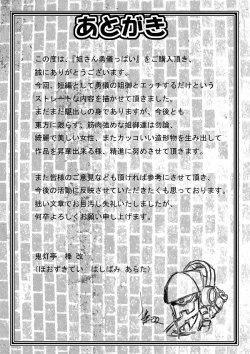 あとがき
この度は、『姐さん勇儀っぱい』をご購入頂き、
誠にありがとうございます。
今回、短編として勇儀の姐御とエッチするだけという
ストレートな内容を描かせて頂きました。
まだまだ駆出しの身でありますが、今後とも
東方に限らず、筋肉強めな姐御達は勿論、
綺麗で美しい女性、またカッコいい造部物を生み出して
作品を昇華出来る様、精進に努めさせて頂きます。
また皆様のご意見なども頂ければ参考にさせて頂き、
今後の活動に反映させていただきたくも思っております。
拙い文章でお目汚し失礼したしましたが、
何卒よろしくお願い申し上げます。
鬼灯亭 榛 改
(ほおずきてい はしばみ あらた)